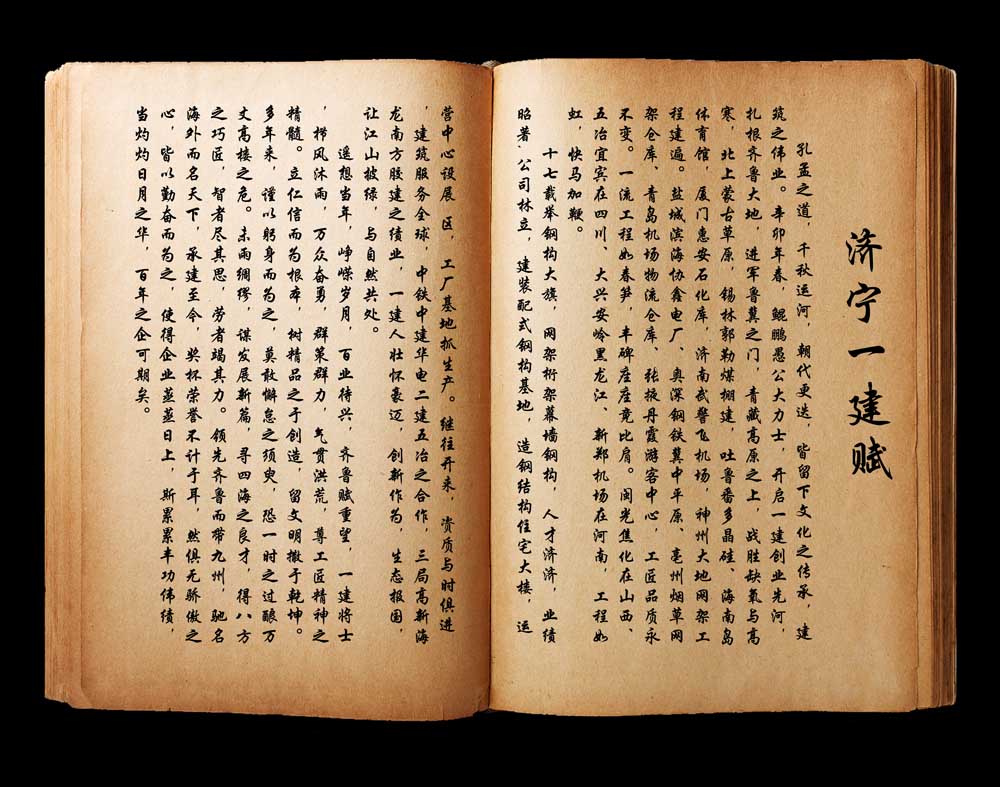 济宁一建赋
孔孟之道，千秋运河，朝代更迭，皆留下文化之传承，建
筑之伟业。辛卯年春，鲲鹏愚公大力士，开启一建创业先河，
扎根齐鲁大地，进军鲁冀之门，青藏高原之上，战胜缺氧与高
寒，北上蒙古草原，锡林郭勒煤棚建，吐鲁番多晶硅、海南岛
体育馆，厦门惠安石化库，济南武警飞机场，神州大地网架工
程建遍。盐城滨海协鑫电厂、奥深钢铁冀中平原、亳州烟草网
架仓库、青岛机场物流仓库、张掖丹霞游客中心，工匠品质永
不变。一流工程如春笋，丰碑座座竞比肩。闽光焦化在山西、
五冶宜宾在四川、大兴安岭黑龙江、新郑机场在河南，工程如
虹，快马加鞭。
十七载举钢构大旗，网架桁架幕墙钢构，人才济济，业绩
昭著，公司林立，建装配式钢构基地，造钢结构住宅大楼，运
营中心设展区，工厂基地抓生产。继往开来，资质与时俱进
，建筑服务全球，中铁中建华电二建五冶之合作，三局高新海
龙南方胶建之绩业，一建人壮怀豪迈，创新作为，生态报国，
让江山披绿，与自然共处。
遥想当年，峥嵘岁月，百业待兴，齐鲁赋重望，一建将士
，栉风沐雨，万众奋勇，群策群力，气贯洪荒，尊工匠精神之
精髓。立仁信而为根本，树精品之于创造，留文明撒于乾坤。
多年来，谨以躬身而为之，莫敢懈怠之须臾，恐一时之过酿万
丈高楼之危。未雨绸缪，谋发展新篇，寻四海之良才，得八方
之巧匠，智者尽其思，劳者竭其力。领先齐鲁而带九州，驰名
海外而名天下，承建至今，奖杯荣誉不计于耳，然俱无骄傲之
心，皆以勤奋而为之，使得企业蒸蒸日上，斯累累丰功伟绩，
当灼灼日月之华，百年之企可期矣。